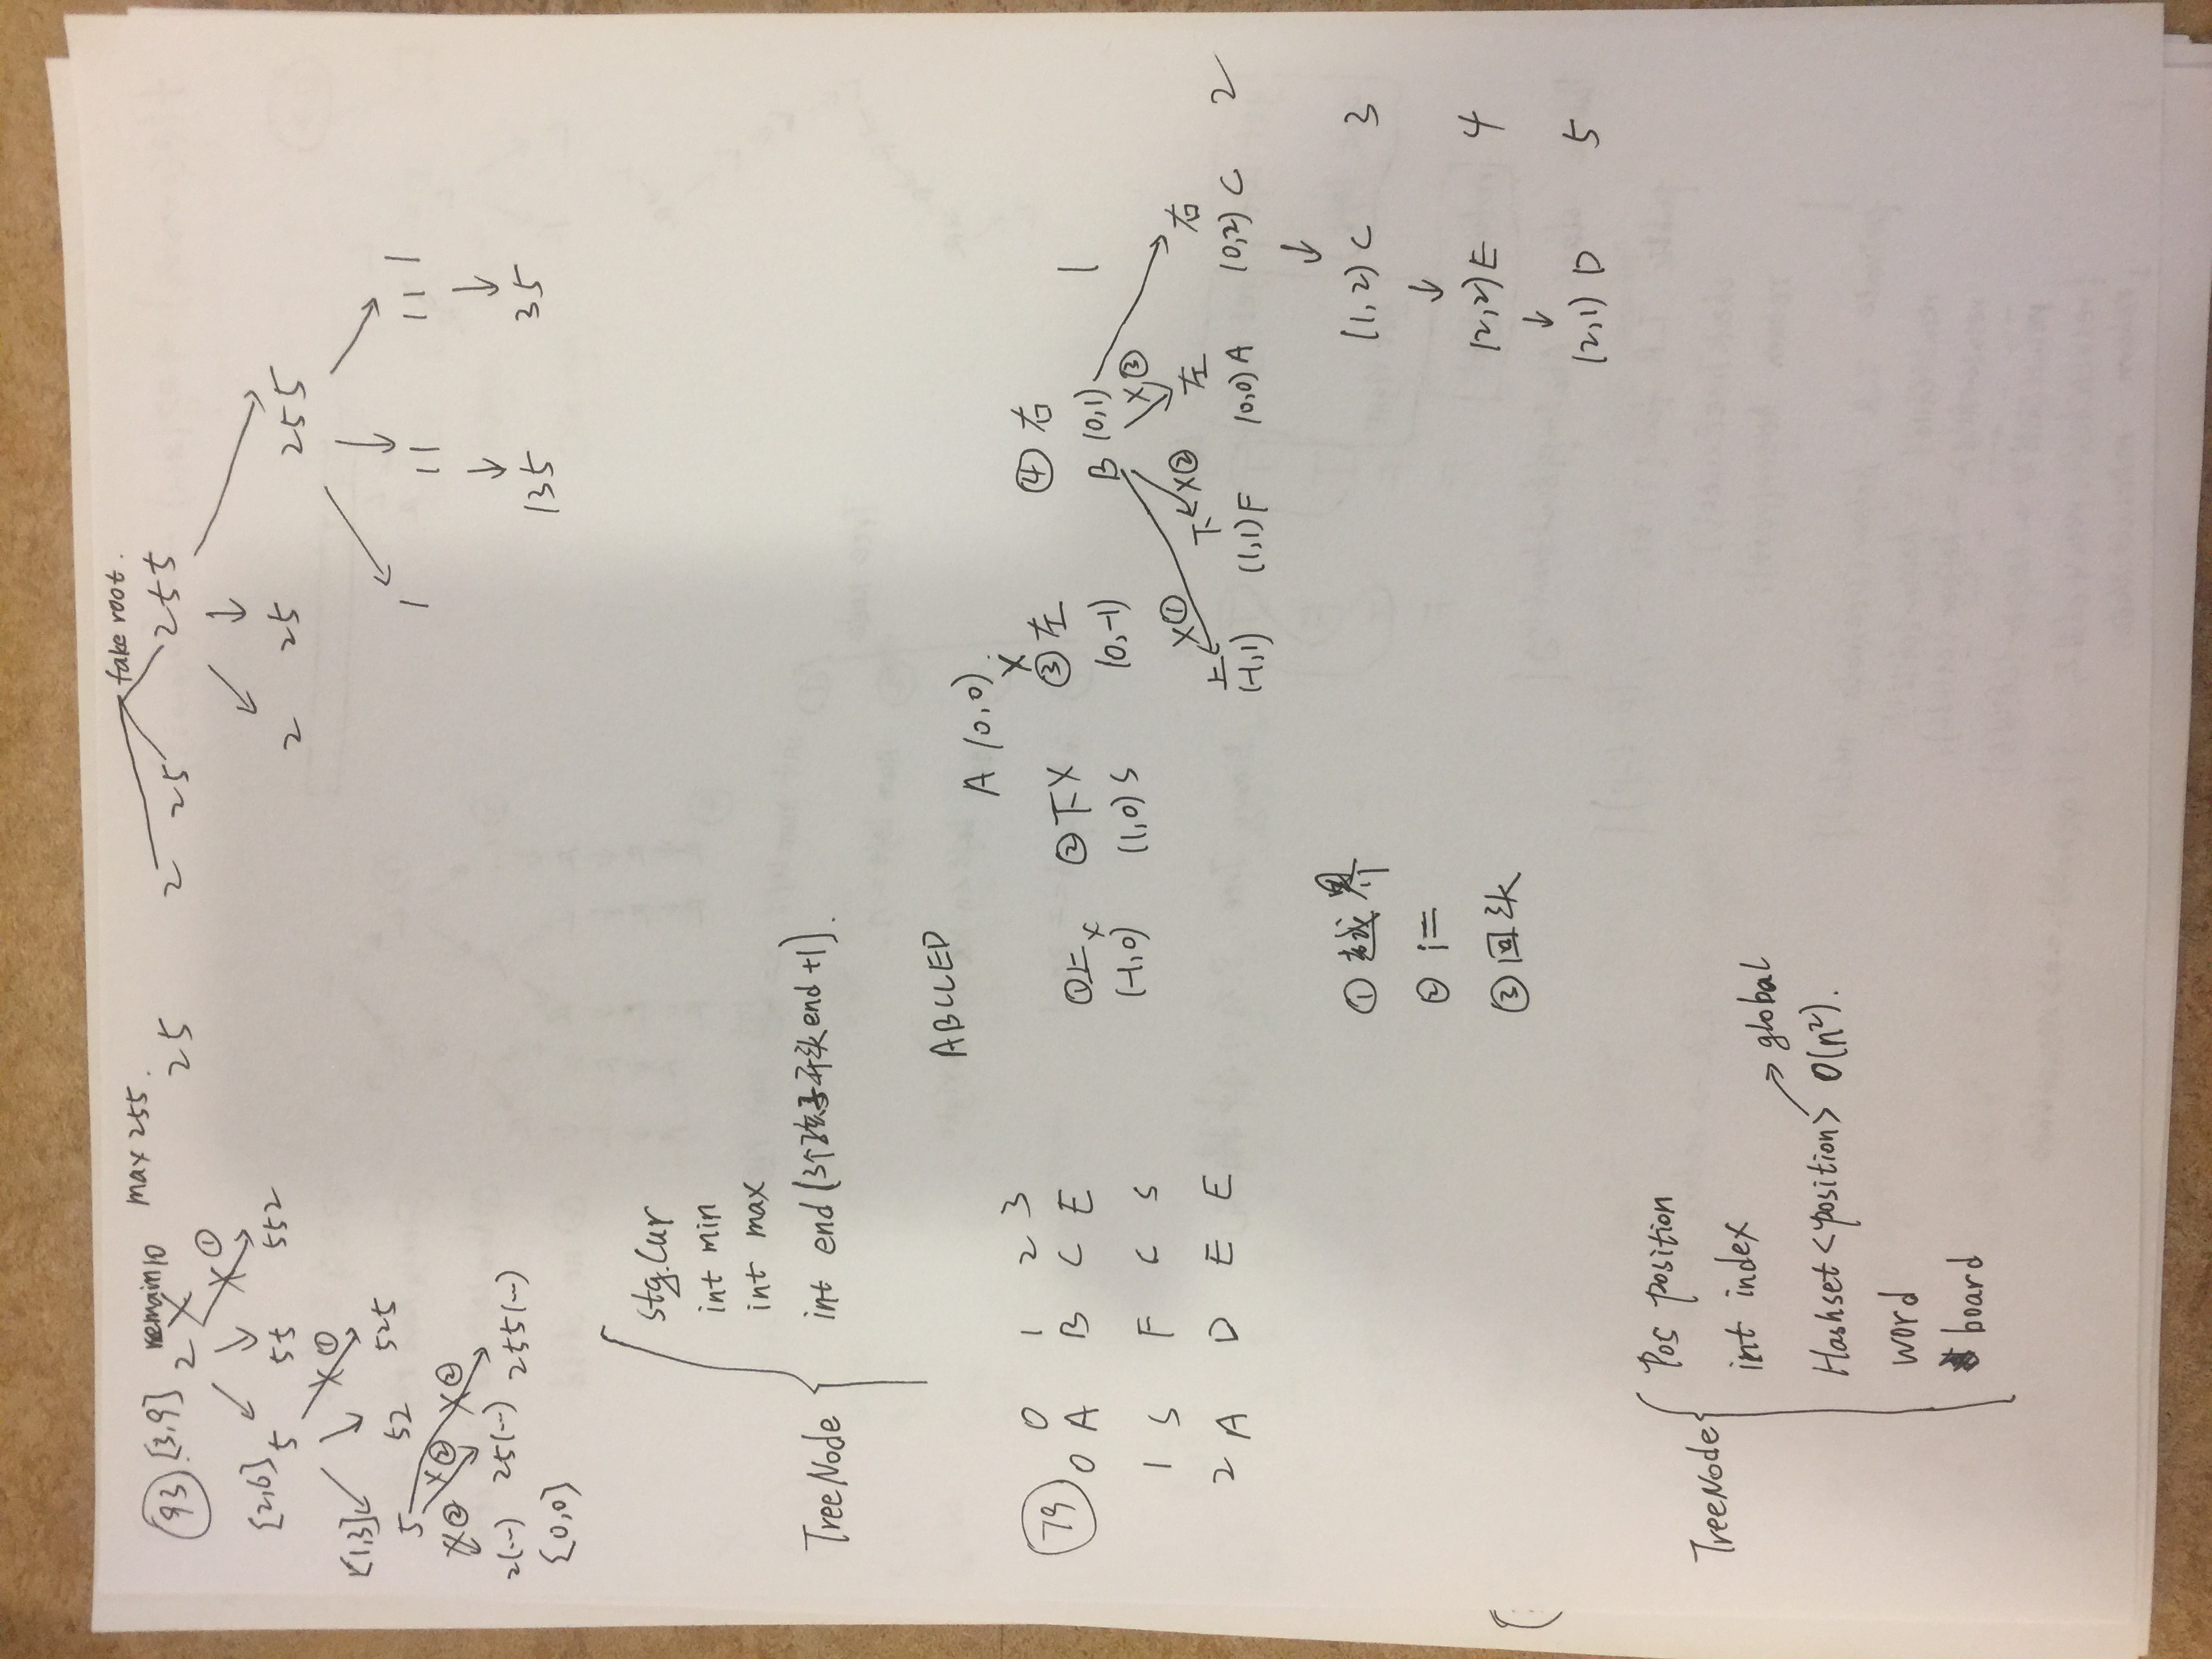 93. [3,9] 2 remain10 max 255. 25
fake root.
2 25 255
{2,6} 5 55 ① 552
2 25 255
[1,3] 5 52 ① 525
1 11 111
② ② ②
2(...) 25(...) 255(...)
135 35
{0,0}
TreeNode
stg.Cur
int min
int max
int end (3个孩子开头end+1).
ABCCED
A (0,0).
79
0 1 2 3
0 A B C E
1 S F C S
2 A D E E
①上x ②下X ③左X ④右
(-1,0) (1,0)S (0,-1) B (0,1) 1
X① X② X③
上 下 左 右
(-1,1) (1,1)F (0,0)A (0,2)C 2
(1,2)C 3
(2,2)E 4
(2,1)D 5
①越界
② i=
③回头
TreeNode
Pos position
int index
Hashset<position> O(n²).
global
word
board